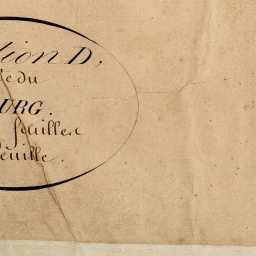 tion D,
du
URG.
feuilles
feuille.